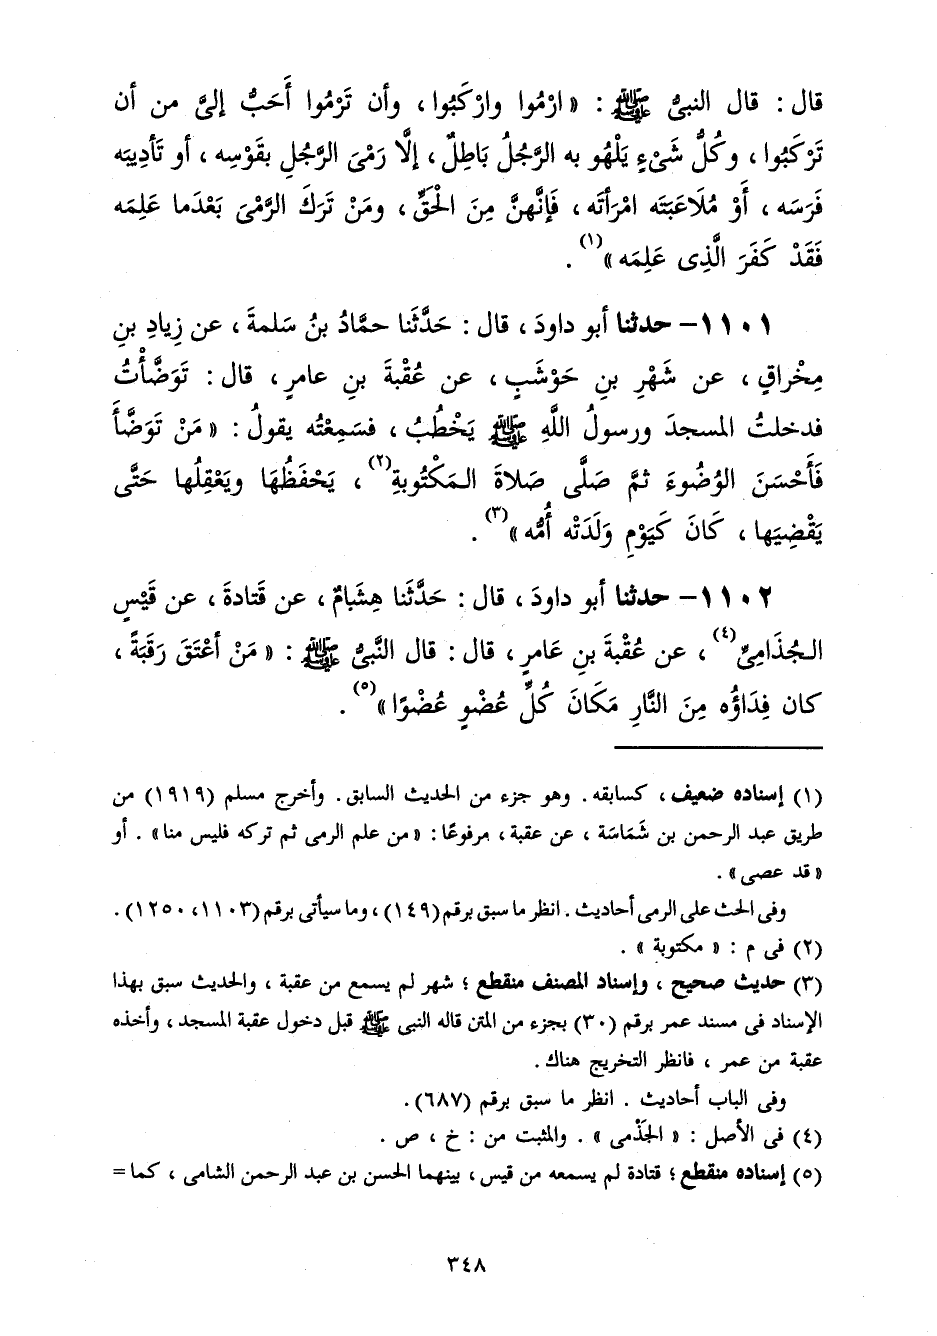 قال : قال النبىُّ ﷺ : « ارْمُوا وارْكَبُوا ، وأن تَرْمُوا أَحَبُّ إلىَّ من أن
تَرْكَبُوا ، وكُلُّ شَىْءٍ يَلْهُو به الرَّجُلُ بَاطِلٌ ، إلَّا رَمْىَ الرَّجُلِ بقَوْسِه ، أو تَأدِيبَه
فَرَسَه ، أَوْ مُلَاعَبَتَه امْرَأتَه ، فَإنَّهنَّ مِنَ الْحَقِّ ، ومَنْ تَرَكَ الرَّمْىَ بَعْدَما عَلِمَه
فَقَدْ كَفَرَ الَّذِى عَلِمَه »(١) .
١١٠١- حدثنا أبو داودَ ، قال : حَدَّثَنا حمَّادُ بنُ سَلمةَ ، عن زِيادِ بنِ
مِخْراقٍ ، عن شَهْرِ بنِ حَوْشَبٍ ، عن عُقْبةَ بنِ عامرٍ ، قال : تَوَضَّأْتُ
فدخلتُ المسجدَ ورسولُ اللَّهِ ﷺ يَخْطُبُ ، فسَمِعْتُه يقولُ : « مَنْ تَوَضَّأَ
فَأَحْسَنَ الوُضُوءَ ثمَّ صَلَّى صَلاةَ المَكْتُوبةِ(٢) ، يَحْفَظُهَا ويَعْقِلُها حَتَّى
يَقْضِيَها ، كَانَ كَيَوْمِ وَلَدَتْه أُمُّه »(٣) .
١١٠٢- حدثنا أبو داودَ ، قال : حَدَّثَنا هِشَامٌ ، عن قَتادةَ ، عن قَيْسٍ
الجُذَامِىِّ(٤) ، عن عُقْبةَ بنِ عَامرٍ ، قال : قال النَّبىُّ ﷺ : « مَنْ أعْتَقَ رَقَبَةً ،
كان فِدَاؤُه مِنَ النَّارِ مَكَانَ كُلِّ عُضْوٍ عُضْوًا »(٥) .
(١) إسناده ضعيف ، كسابقه . وهو جزء من الحديث السابق . وأخرج مسلم (١٩١٩) من
طريق عبد الرحمن بن شَمَاسَة ، عن عقبة ، مرفوعًا : « من علم الرمى ثم تركه فليس منا » . أو
« قد عصى » .
وفى الحث على الرمى أحاديث . انظر ما سبق برقم (١٤٩) ، وما سيأتى برقم (١١٠٣، ١٢٥٠) .
(٢) فى م : « مكتوبة » .
(٣) حديث صحيح ، وإسناد المصنف منقطع ؛ شهر لم يسمع من عقبة ، والحديث سبق بهذا
الإسناد فى مسند عمر برقم (٣٠) بجزء من المتن قاله النبى ﷺ قبل دخول عقبة المسجد ، وأخذه
عقبة من عمر ، فانظر التخريج هناك .
وفى الباب أحاديث . انظر ما سبق برقم (٦٨٧) .
(٤) فى الأصل : « الجَذْمى » . والمثبت من : خ ، ص .
(٥) إسناده منقطع ؛ قتادة لم يسمعه من قيس ، بينهما الحسن بن عبد الرحمن الشامى ، كما =
٣٤٨